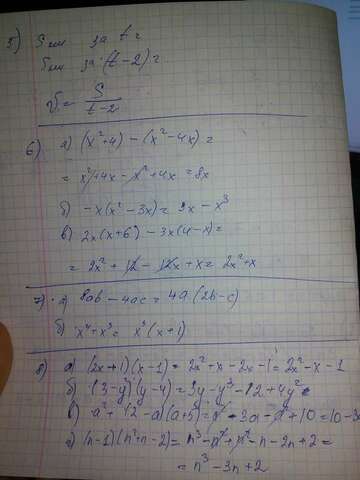 5) S км за t г
S км за (t-2) г
v = S/(t-2)
6) а) (x²+4) - (x²-4x) =
= x²+4x - x²+4x = 8x
б) -x(x²-3x) = 3x - x³
в) 2x(x+6) - 3x(4-x) =
= 2x² + 12 - 12x + x = 2x²+x
7) а) 8ab - 4ac = 4a(2b-c)
б) x⁴+x³ = x³(x+1)
8) а) (2x+1)(x-1) = 2x²+x-2x-1 = 2x²-x-1
б) (3-y²)(y-4) = 3y-y³-12+4y²
в) a²+(2-a)(a+5) = a²-3a-a²+10 = 10-3
г) (n-1)(n²+n-2) = n³-n²+n²-n-2n+2 =
= n³-3n+2